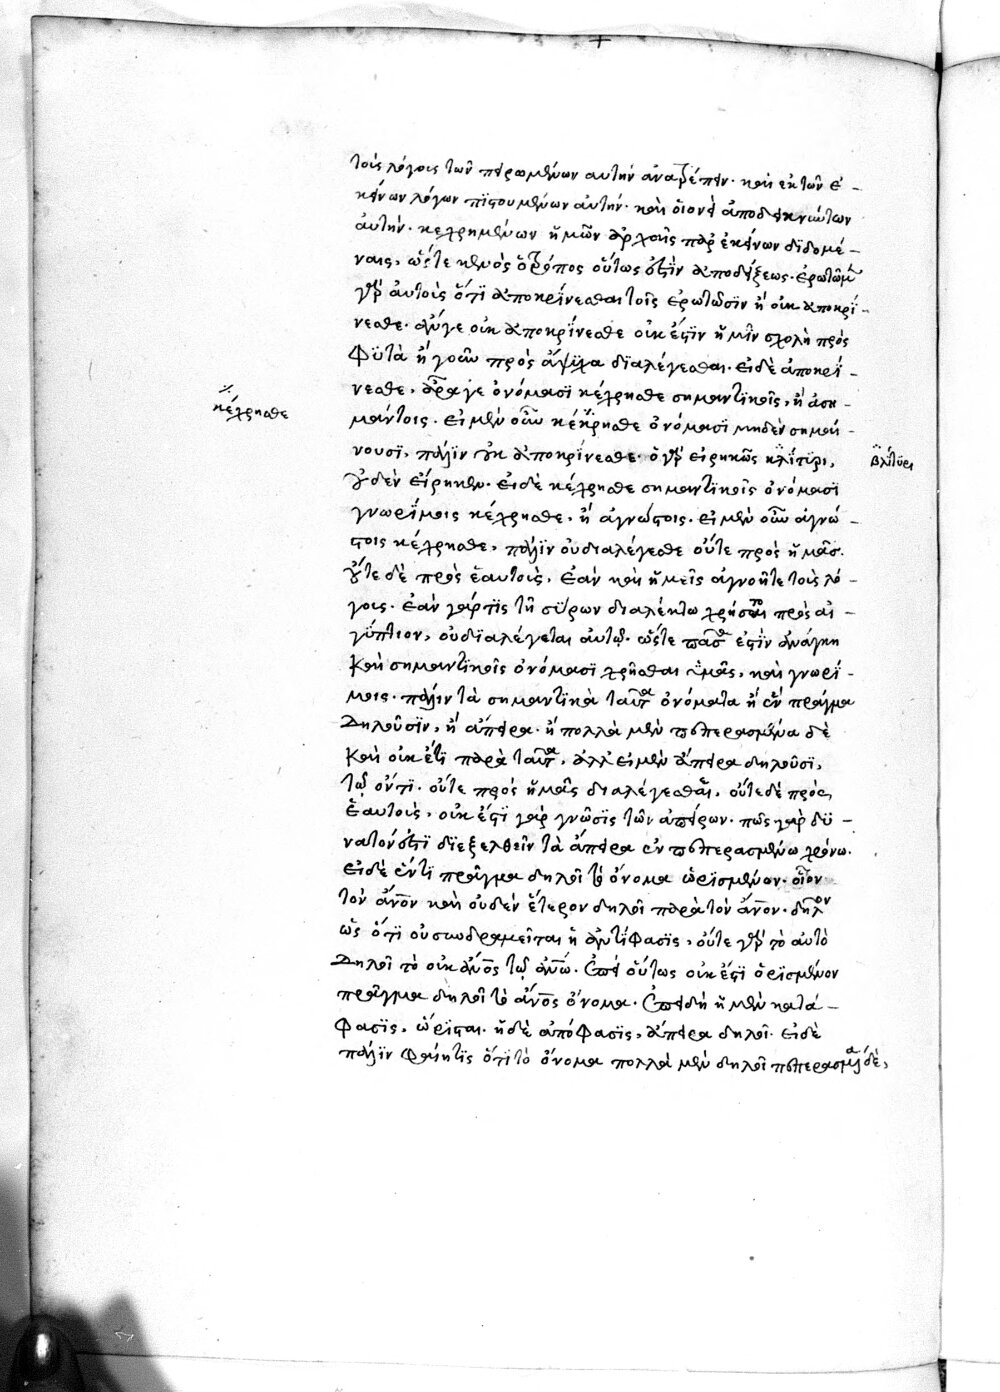 τοῖς λόγοις τῶν πειρωμένων αὐτὴν ἀνατρέπειν· καὶ ἐκ τῶν ἐ-
κείνων λόγων πιστουμένων αὐτήν· καὶ οἱονεὶ ἀποδεικνύντων
αὐτήν· κεχρημένων ἡμῶν ἀρχαῖς παρ' ἐκείνων διδομέ-
ναις, ὥστε κενὸς ὁ τρόπος οὗτος ἐστὶν ἀποδείξεως· ἐρωτῶμεν
γὰρ αὐτοὺς ὅτι ἀποκρίνεσθαι τοῖς ἐρωτῶσιν ἢ οὐκ ἀποκρί-
νεσθε· ἀλλ' εἴγε οὐκ ἀποκρίνεσθε οὐκ ἔστιν ἡμῖν σχολὴ πρὸς
φυτὰ ἤγουν πρὸς ἄψυχα διαλέγεσθαι· εἰ δὲ ἀποκρί-
νεσθε, ἆρά γε ὀνόμασι κέχρησθε σημαντικοῖς, ἢ ἀση-
μάντοις· εἰ μὲν οὖν κέχρησθε ὀνόμασι μηδὲν σημαί-
κέχρησθε
νουσι, πάλιν οὐκ ἀποκρίνεσθε· ὁ γὰρ εἰρηκὼς κλίτυρι,
βλίτυρι
οὐδὲν εἴρηκεν· εἰ δὲ κέχρησθε σημαντικοῖς ὀνόμασι
γνωρίμοις κέχρησθε, ἢ ἀγνώστοις· εἰ μὲν οὖν ἀγνώ-
στοις κέχρησθε, πάλιν οὐ διαλέγεσθε οὔτε πρὸς ἡμᾶς·
οὔτε δὲ πρὸς ἑαυτούς, ἐὰν καὶ ἡμεῖς ἀγνοῆτε τοὺς λό-
γους· ἐὰν γάρ τις τῇ σύρων διαλέκτω χρήσηται πρὸς αἰ-
γύπτιον, οὐ διαλέγεται αὐτῷ· ὥστε πᾶσα ἐστὶν ἀνάγκη
καὶ σημαντικοῖς ὀνόμασι χρῆσθαι ὑμᾶς, καὶ γνωρί-
μοις· πάλιν τὰ σημαντικὰ ταῦτα ὀνόματα ἢ ἓν πρᾶγμα
δηλοῦσιν, ἢ ἄπειρα· ἢ πολλὰ μὲν πεπερασμένα δὲ
καὶ οὐκ ἔτι παρὰ ταῦτα, ἀλλ' εἰ μὲν ἄπειρα δηλοῦσι,
τῷ ὄντι· οὔτε πρὸς ἡμᾶς διαλέγεσθαι, οὔτε δὲ πρὸς
ἑαυτούς, οὐκ ἔστι γὰρ γνῶσις τῶν ἀπείρων· πῶς γὰρ δυ-
νατόν ἐστι διεξελθεῖν τὰ ἄπειρα ἐν πεπερασμένω χρόνω·
εἰ δὲ ἕν τι πρᾶγμα δηλοῖ τὸ ὄνομα ὡρισμένον· οἷον
τὸν ἄνον καὶ οὐδὲν ἕτερον δηλοῖ παρὰ τὸν ἄνον· δῆλον
ὡς ὅτι οὐ συνδραμεῖται ἡ ἀντίφασις, οὔτε γὰρ τὸ αὐτὸ
δηλοῖ τὸ οὐκ ἄνος τῷ ἄνω· ἐπεὶ οὕτως οὐκ ἔστι ὁρισμένον
πρᾶγμα δηλοῖ τὸ ἄνος ὄνομα· ἐπειδὴ ἡ μὲν κατά-
φασις, ὥρισται· ἡ δὲ ἀπόφασις, ἄπειρα δηλοῖ· εἰ δὲ
πάλιν φαίη τις ὅτι τὸ ὄνομα πολλὰ μὲν δηλοῖ πεπερασμένα δὲ,